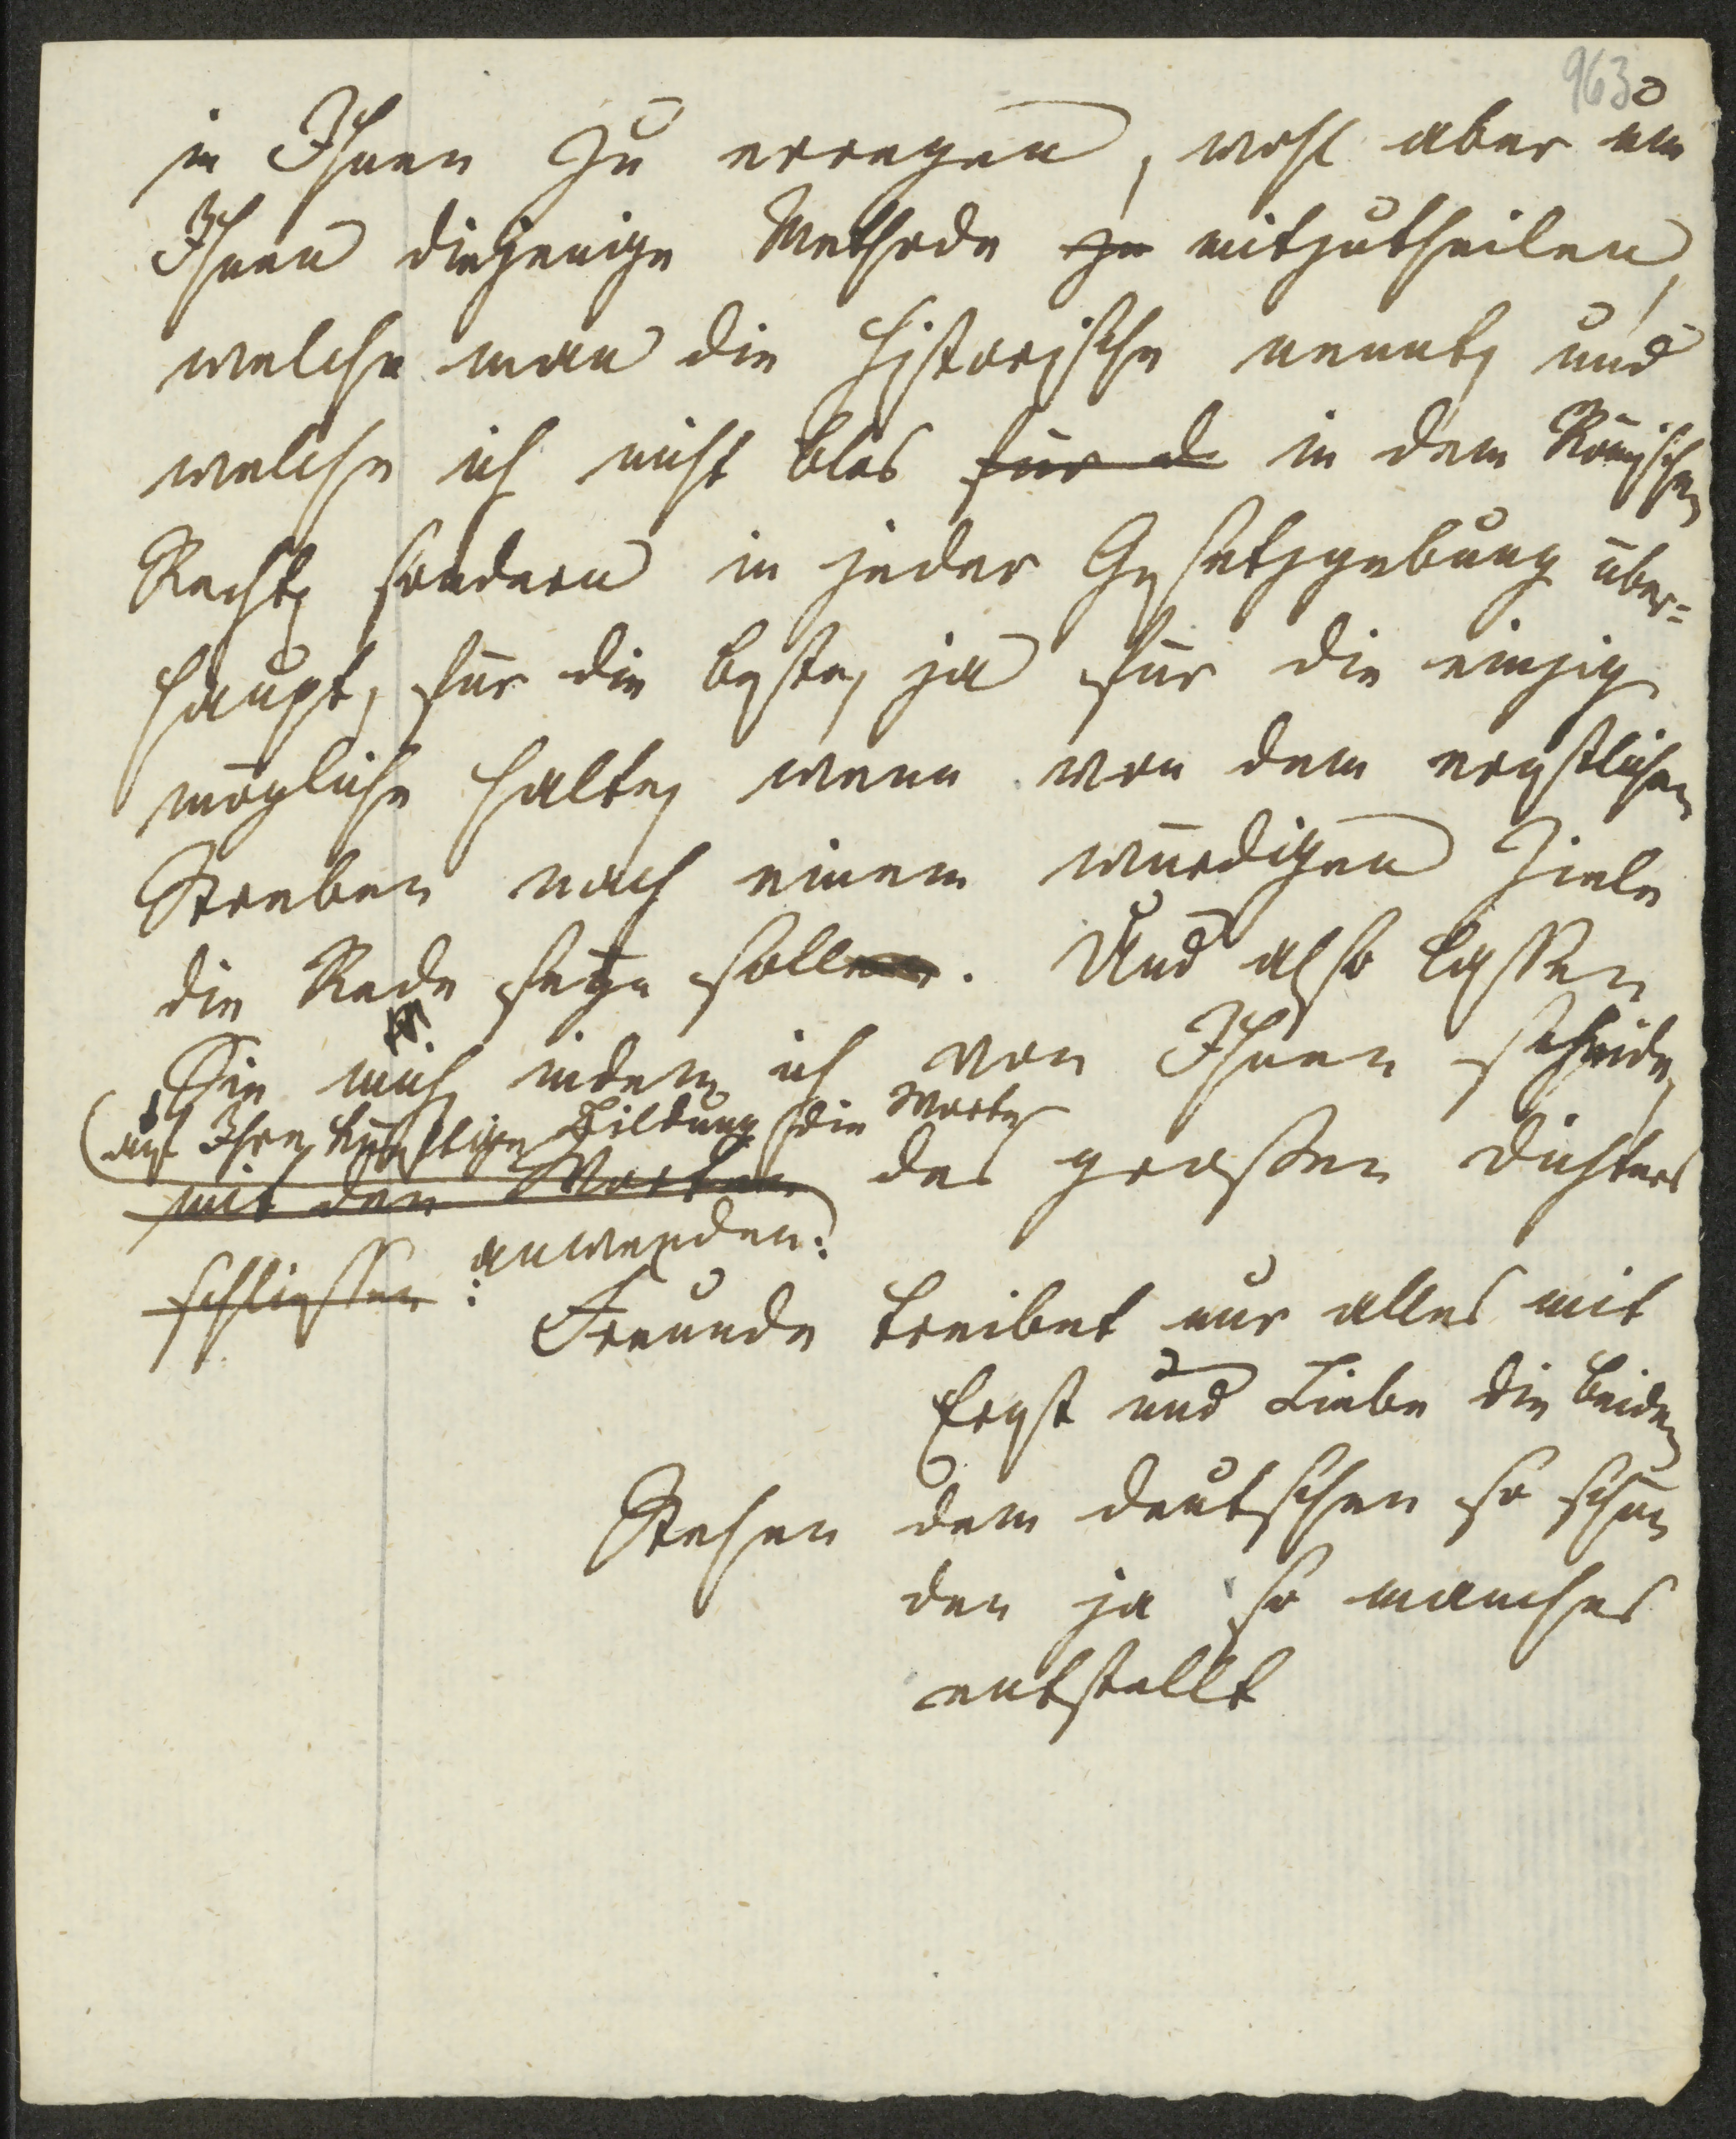 963
in Ihnen zu erregen, wohl aber um
Ihnen diejenige Methode zu mitzutheilen,
welche man die historische nennt, und
welche ich nicht blos für d in dem Römischen
Recht, sondern in jeder Gesetzgebung über=
haupt, für die beste, ja für die einzig
mögliche halte, wenn von dem ernstlichen
Streben nach einem würdigen Ziele
die Rede seyn soll. Und also lassen
Sie mich, indem ich von Ihnen scheide,
auf Ihre künftige Bildung die Worte
mit den Worten des großen Dichters
schliessen: anwenden:
Freunde treibet nur alles mit
Ernst und Liebe die beiden
Stehen dem deutschen so schön
den ja so manches
entstellt